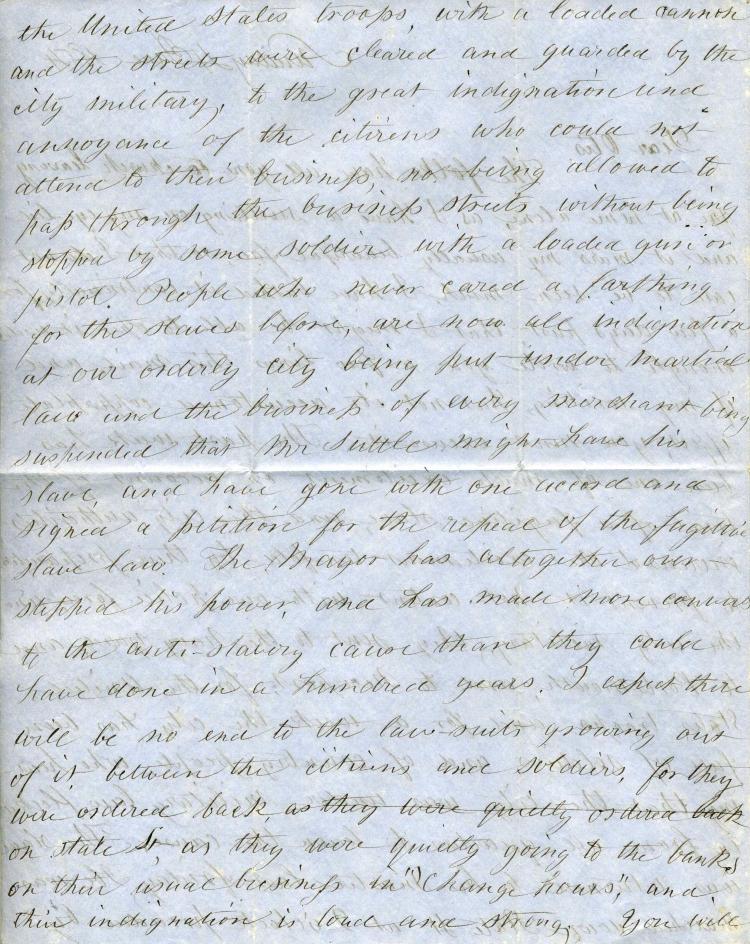 the United States troops, with a loaded cannon
and the streets were cleared and guarded by the
city military, to the great indignation and
annoyance of the citizens who could not
attend to their business, no. being allowed to
pass through the business streets without being
stopped by some soldier with a loaded gun or
pistol. People who never cared a farthing
for the slaves before, are now all indignation
at our orderly city being put under martial
law and the business of every merchant being
suspended that Mr Suttle might have his
slave, and have gone with one accord and
signed a petition for the repeal of the fugitive
slave law. The Mayor has altogether over
stepped his power, and has made more conver
to the anti-slavery cause than they could
have done in a hundred years. I expect there
will be no end to the law-suits growing out
of it between the citizens and soldiers, for they
were ordered back, as they were quietly ordered back
on state St, as they were quietly going to the banks
on their usual business in "Change hours", and
their indignation is loud and strong. You will